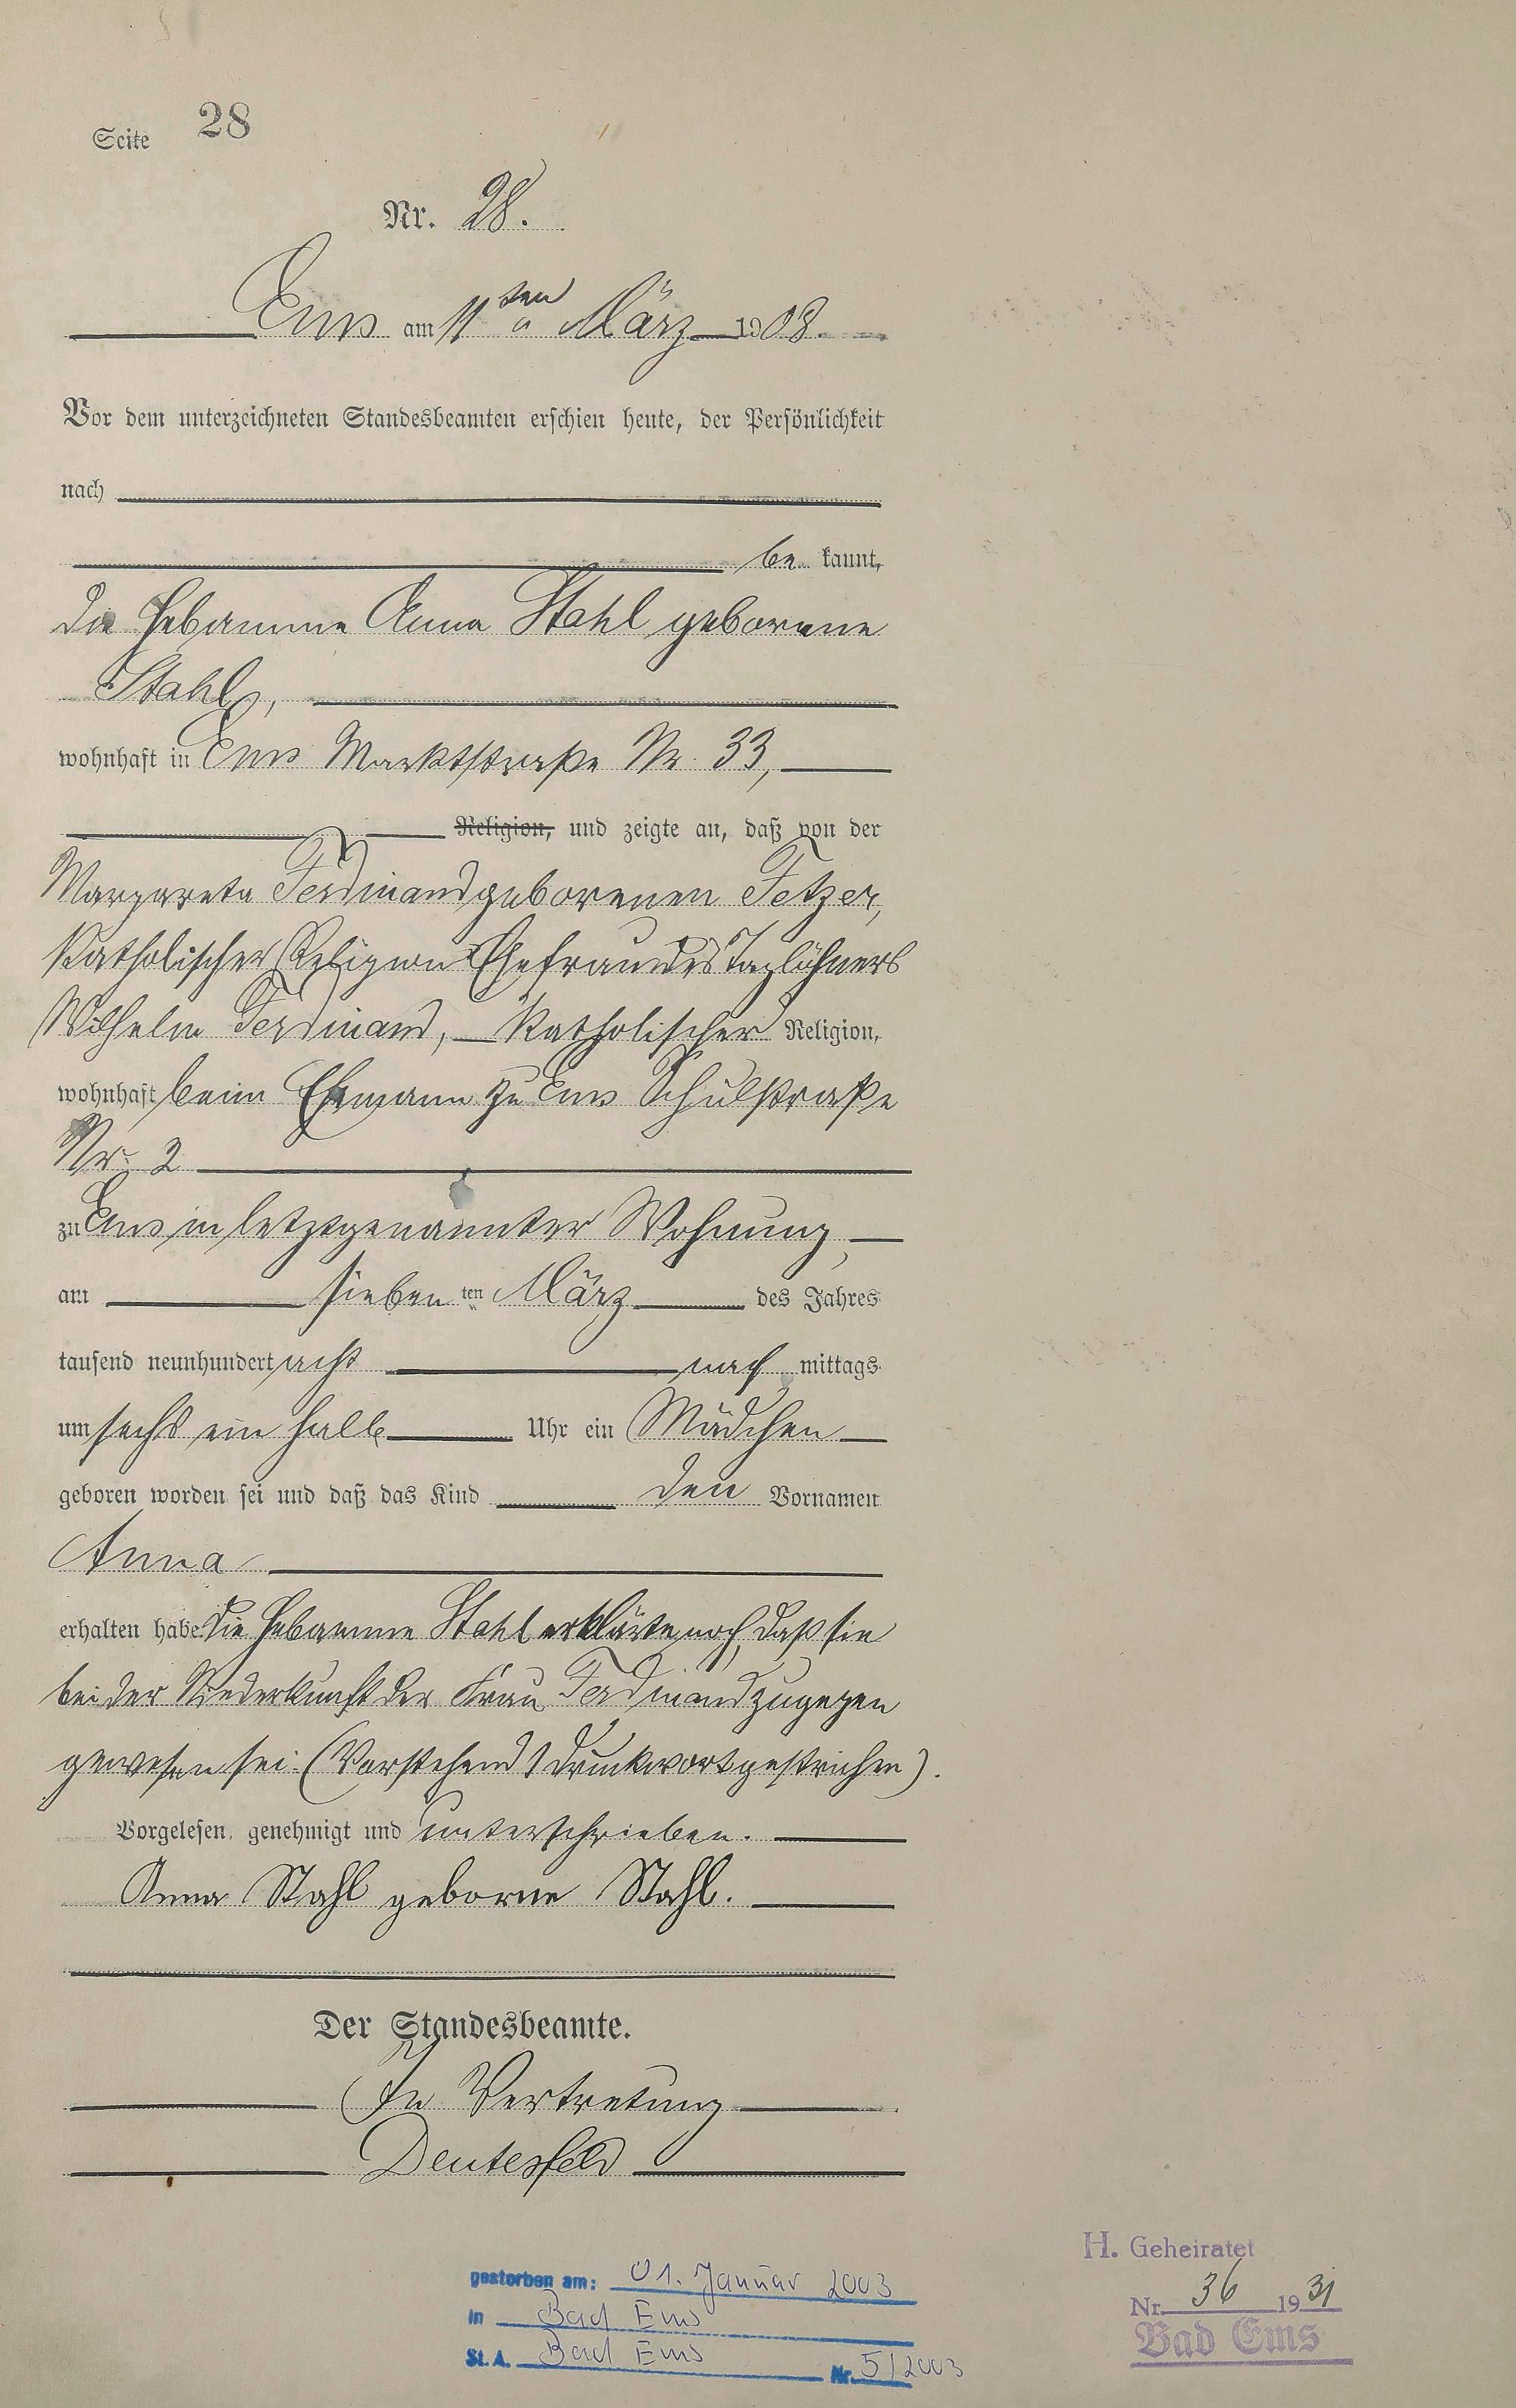 Seite 28
Nr. 28.
Ems am 11ten März 1908.
Vor dem unterzeichneten Standesbeamten erschien heute, der Persönlichkeit
nach
be kannt,
die Hebamme Anna Stahl geborene
Stahl,
wohnhaft in Ems Marktstraße Nr. 33,
Religion, und zeigte an, daß von der
Margareta Ferdinand geborenen Fetzer,
katholischer Religion Ehefrau des Taglöhners
Wilhelm Ferdinand, katholischer Religion,
wohnhaft beim Ehemann zu Ems Schulstraße
Nr. 2
zu Ems in letztgenannter Wohnung,
am sieben ten März des Jahres
tausend neunhundert acht nach mittags
um sechs ein halb Uhr ein Mädchen
geboren worden sei und daß das Kind den Vornamen
Anna
erhalten habe. Die Hebamme Stahl erklärte noch, daß sie
bei der Niederkunft der Frau Ferdinand zugegen
gewesen sei. (Vorstehend 1 Druckwort gestrichen).
Vorgelesen, genehmigt und unterschrieben.
Anna Stahl geborne Stahl.
Der Standesbeamte.
In Vertretung
Deutesfeld
gestorben am: 01. Januar 2003
in Bad Ems
St. A. Bad Ems Nr. 5/2003
H. Geheiratet
Nr. 36 1931
Bad Ems